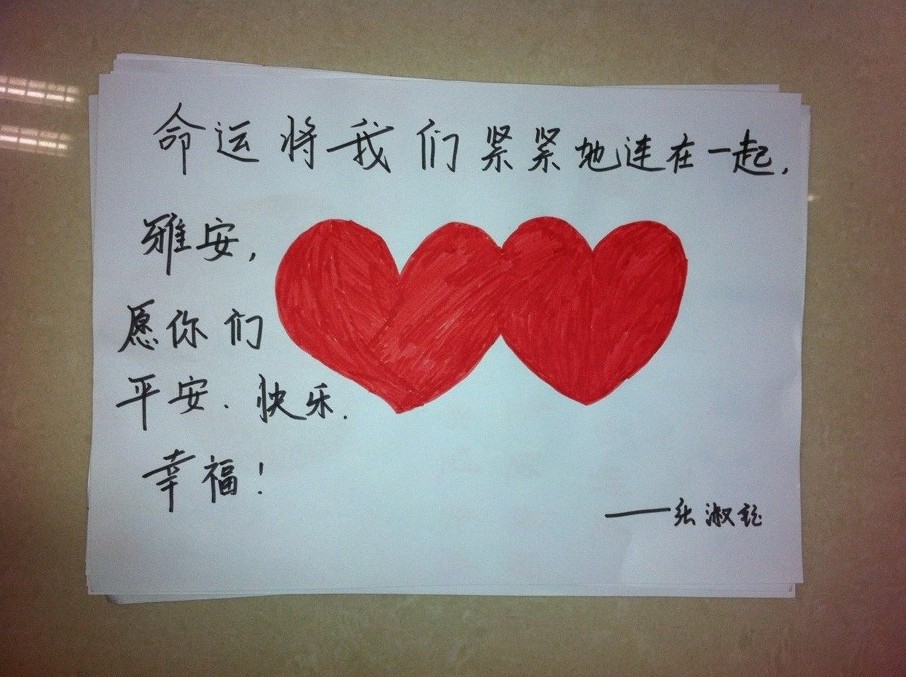 命运将我们紧紧地连在一起,
雅安,
愿你们
平安.快乐.
幸福!
——张淑钰